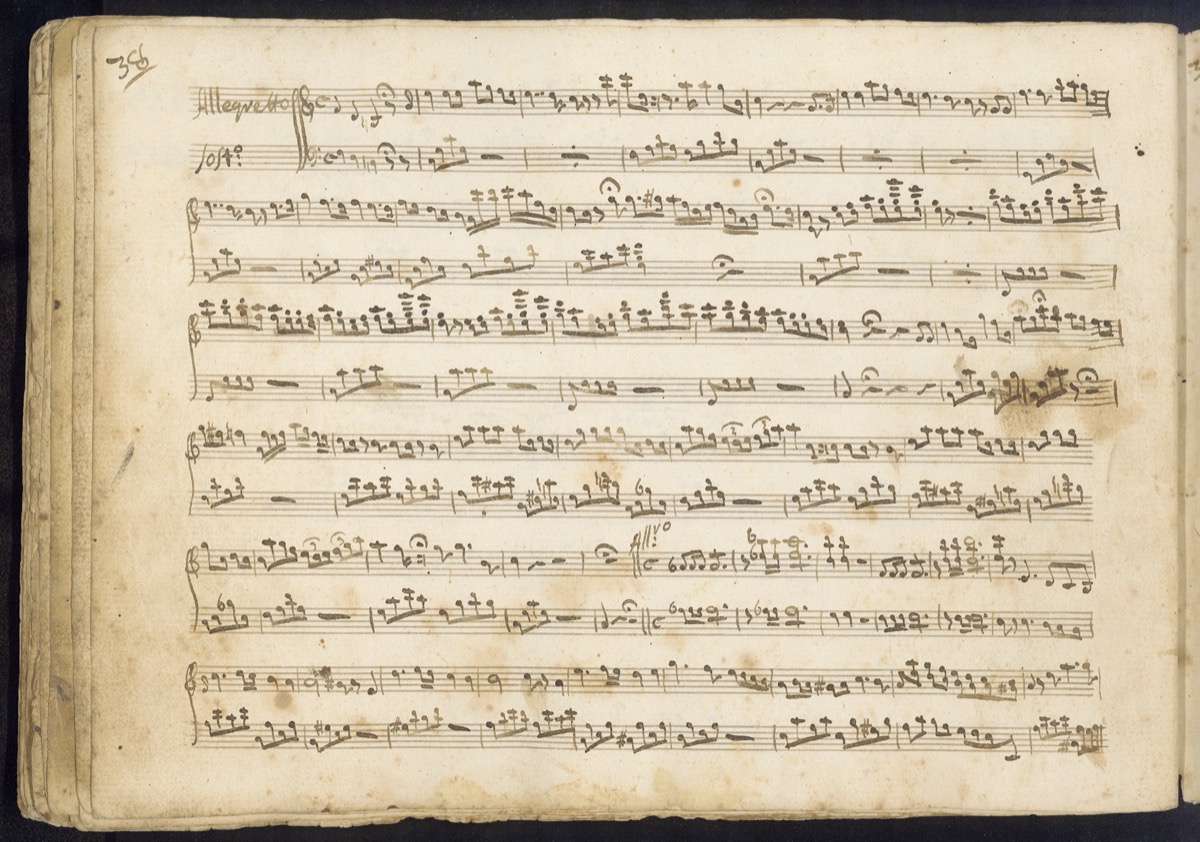 38
Allegretto
Sost:o
All:vo